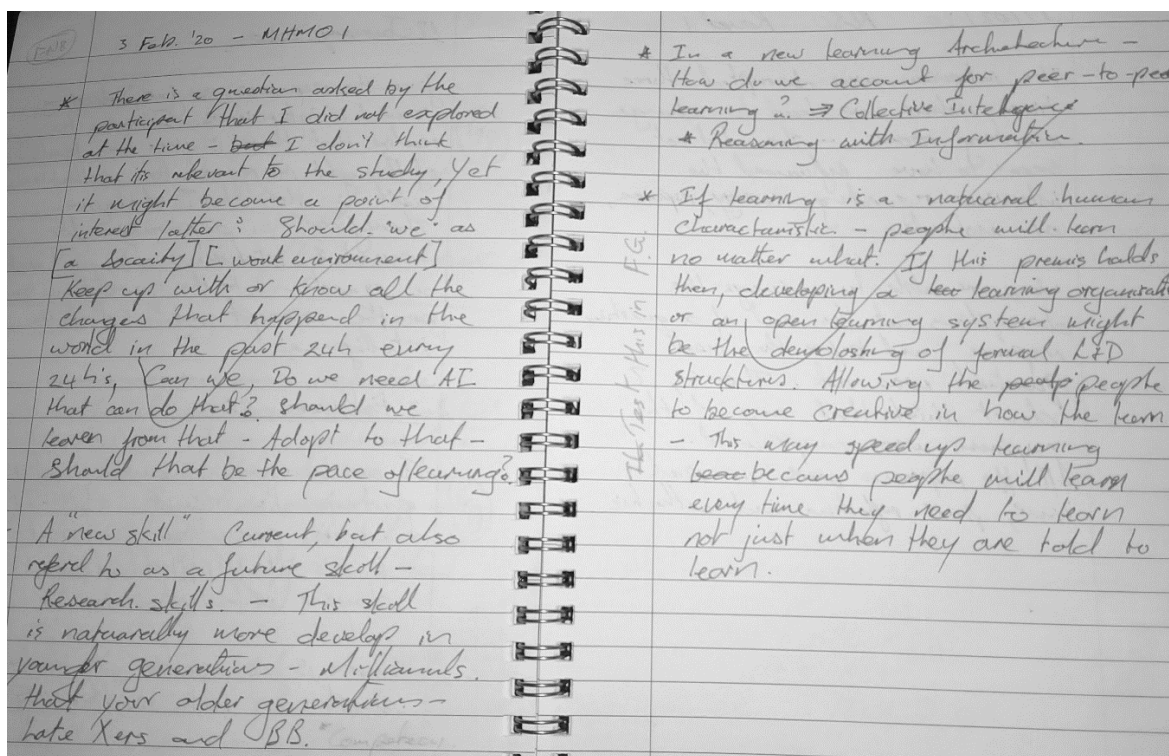 3 Feb. '20 - MHM01
* There is a question asked by the
participant that I did not explored
at the time - but I don't think
that it's relevant to the study, Yet
it might become a point of
interest latter: Should "we" as
[a Socaity] [work environment]
Keep up with or know all the
changes that happend in the
world in the past 24h every
24h's, Can we, Do we need AI
that can do that? should we
learn from that - Adopt to that -
should that be the pace of learning?
- A "new skill" Current, but also
referd to as a future skill -
Research skills. - This skill
is natuarally more develop in
younger generations - Millianuls.
that your older generations -
Late Xers and BB.
* In a new learning Architechture -
How do we account for peer-to-peer
learning? ⇒ Collective Intelligence
* Reasoning with Information.
* If learning is a natuaral human
characteristic - people will learn
no matter what. If this premis holds
then, developing a learning organisati
or an open learning system might
be the demoloshing of formal L&D
strucktures. Allowing the people
to become creative in how the learn
- This may speed up learning
becaus people will learn
every time they need to learn
not just when they are told to
learn.
Test this in F.G.